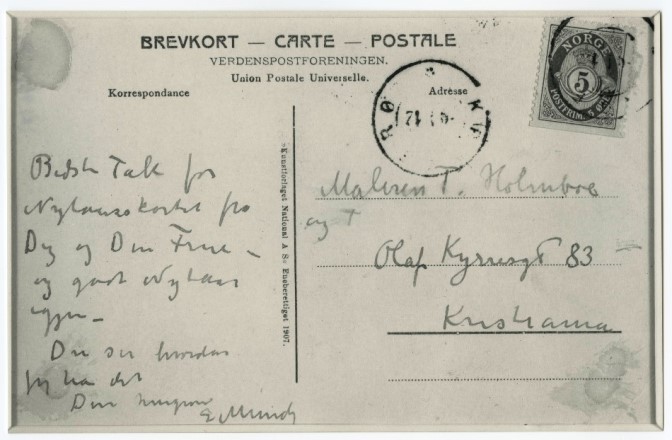 BREVKORT — CARTE — POSTALE
VERDENSPOSTFORENINGEN.
Union Postale Universelle.
Korrespondance
Adresse
NORGE
5
POSTFRIM. 5 ØRE
Bedste Takk for
Nytaarskortet fra
Dig og Din Frue –
og godt Nytaar
igjen –
Du ser hvordan
jeg har det
Din hengivne
E Munch
Kunstforlaget National A S: Eneberettiget 1907.
Maleren T. Holmboe
og
Olaf Kyrresgt 83
Kristiania